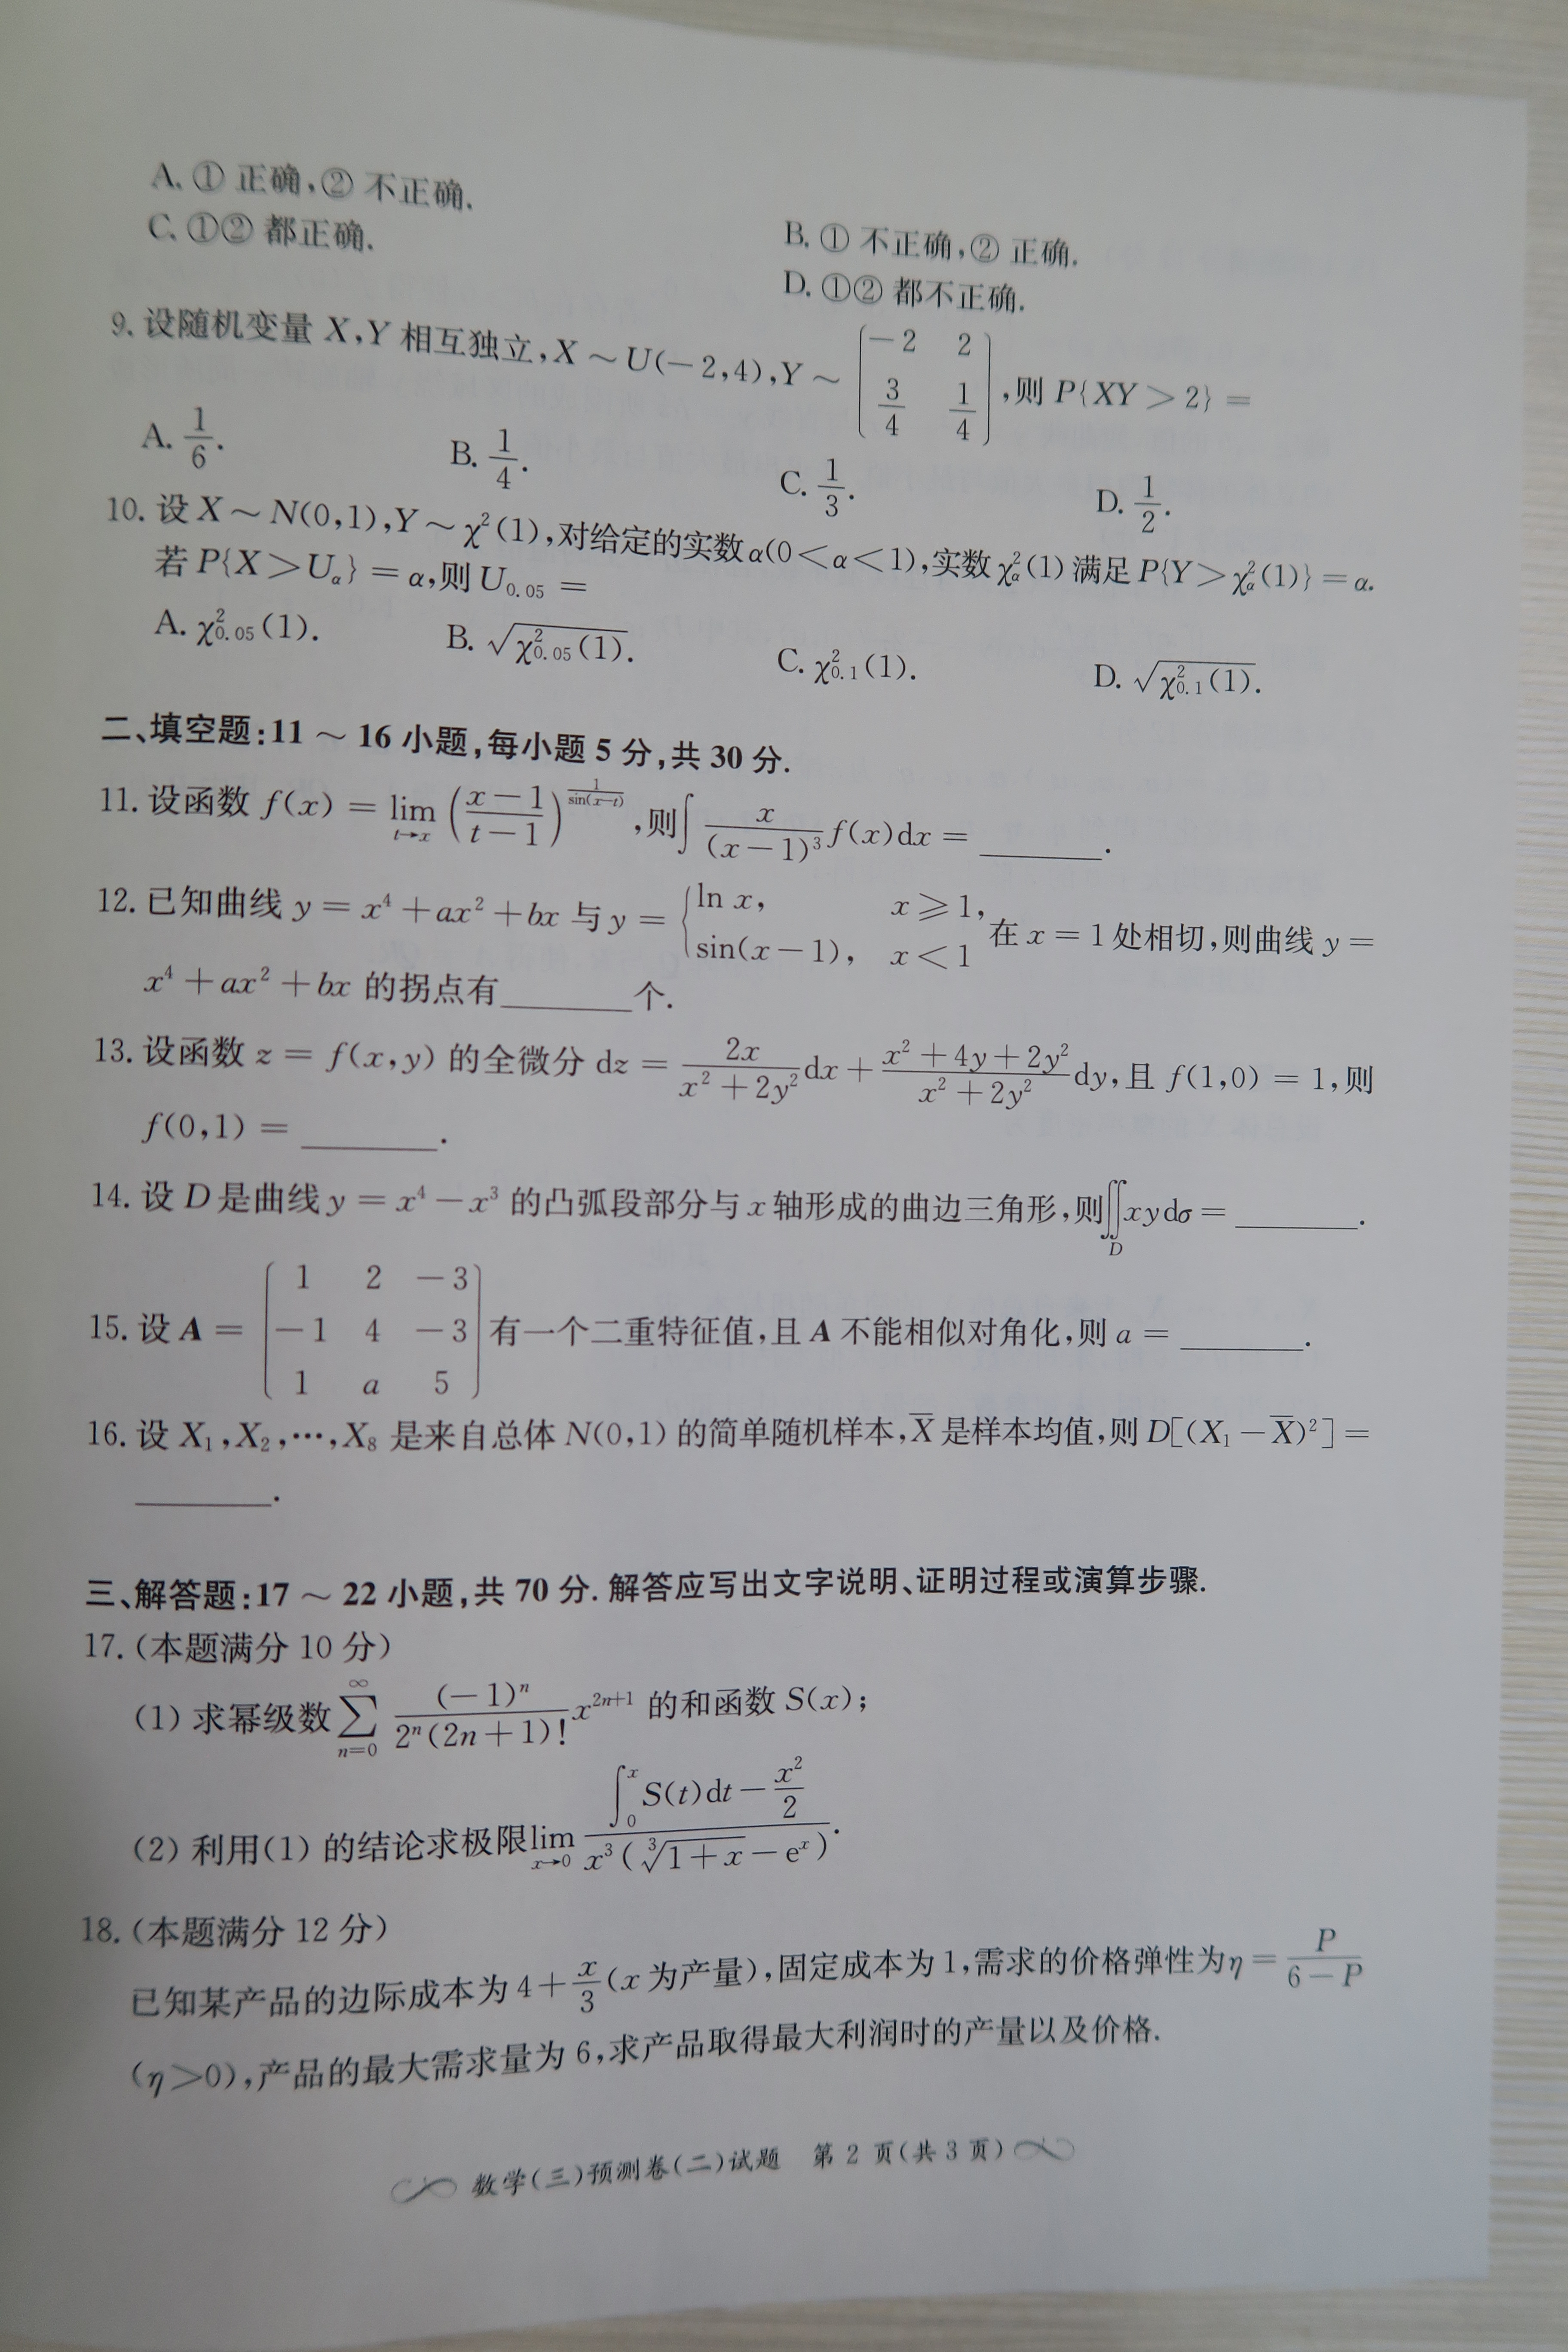 A. ① 正确,② 不正确.
B. ① 不正确,② 正确.
C. ①② 都正确.
D. ①② 都不正确.
9. 设随机变量 X,Y 相互独立,X ~ U(−2,4),Y ~ $\begin{pmatrix} -2 & 2 \\ \frac{3}{4} & \frac{1}{4} \end{pmatrix}$,则 P{XY > 2} =
A. $\frac{1}{6}$. B. $\frac{1}{4}$. C. $\frac{1}{3}$. D. $\frac{1}{2}$.
10. 设 X ~ N(0,1),Y ~ $\chi^2(1)$,对给定的实数 α(0<α<1),实数 $\chi^2_\alpha(1)$ 满足 P{Y > $\chi^2_\alpha(1)$} = α.
若 P{X > $U_\alpha$} = α,则 $U_{0.05}$ =
A. $\chi^2_{0.05}(1)$. B. $\sqrt{\chi^2_{0.05}(1)}$. C. $\chi^2_{0.1}(1)$. D. $\sqrt{\chi^2_{0.1}(1)}$.
二、填空题:11 ~ 16 小题,每小题 5 分,共 30 分.
11. 设函数 $f(x) = \lim_{t \to x} \left(\frac{x-1}{t-1}\right)^{\frac{1}{\sin(x-t)}}$,则 $\int \frac{x}{(x-1)^3} f(x)dx$ = ______.
12. 已知曲线 $y = x^4 + ax^2 + bx$ 与 $y = \begin{cases} \ln x, & x \geqslant 1, \\ \sin(x-1), & x < 1 \end{cases}$ 在 x = 1 处相切,则曲线 y =
$x^4 + ax^2 + bx$ 的拐点有______个.
13. 设函数 z = f(x,y) 的全微分 $dz = \frac{2x}{x^2+2y^2}dx + \frac{x^2+4y+2y^2}{x^2+2y^2}dy$,且 f(1,0) = 1,则
f(0,1) = ______.
14. 设 D 是曲线 $y = x^4 - x^3$ 的凸弧段部分与 x 轴形成的曲边三角形,则 $\iint_D xy d\sigma$ = ______.
15. 设 $A = \begin{pmatrix} 1 & 2 & -3 \\ -1 & 4 & -3 \\ 1 & a & 5 \end{pmatrix}$ 有一个二重特征值,且 A 不能相似对角化,则 a = ______.
16. 设 $X_1,X_2,\cdots,X_8$ 是来自总体 N(0,1) 的简单随机样本,$\overline{X}$ 是样本均值,则 $D[(X_1-\overline{X})^2]$ =
______.
三、解答题:17 ~ 22 小题,共 70 分. 解答应写出文字说明、证明过程或演算步骤.
17. (本题满分 10 分)
(1) 求幂级数 $\sum_{n=0}^{\infty} \frac{(-1)^n}{2^n(2n+1)!}x^{2n+1}$ 的和函数 S(x);
(2) 利用(1) 的结论求极限 $\lim_{x \to 0} \frac{\int_0^x S(t)dt - \frac{x^2}{2}}{x^3(\sqrt[3]{1+x} - e^x)}$.
18. (本题满分 12 分)
已知某产品的边际成本为 $4 + \frac{x}{3}$(x 为产量),固定成本为 1,需求的价格弹性为 $\eta = \frac{P}{6-P}$
(η>0),产品的最大需求量为 6,求产品取得最大利润时的产量以及价格.
数学(三)预测卷(二)试题 第 2 页(共 3 页)